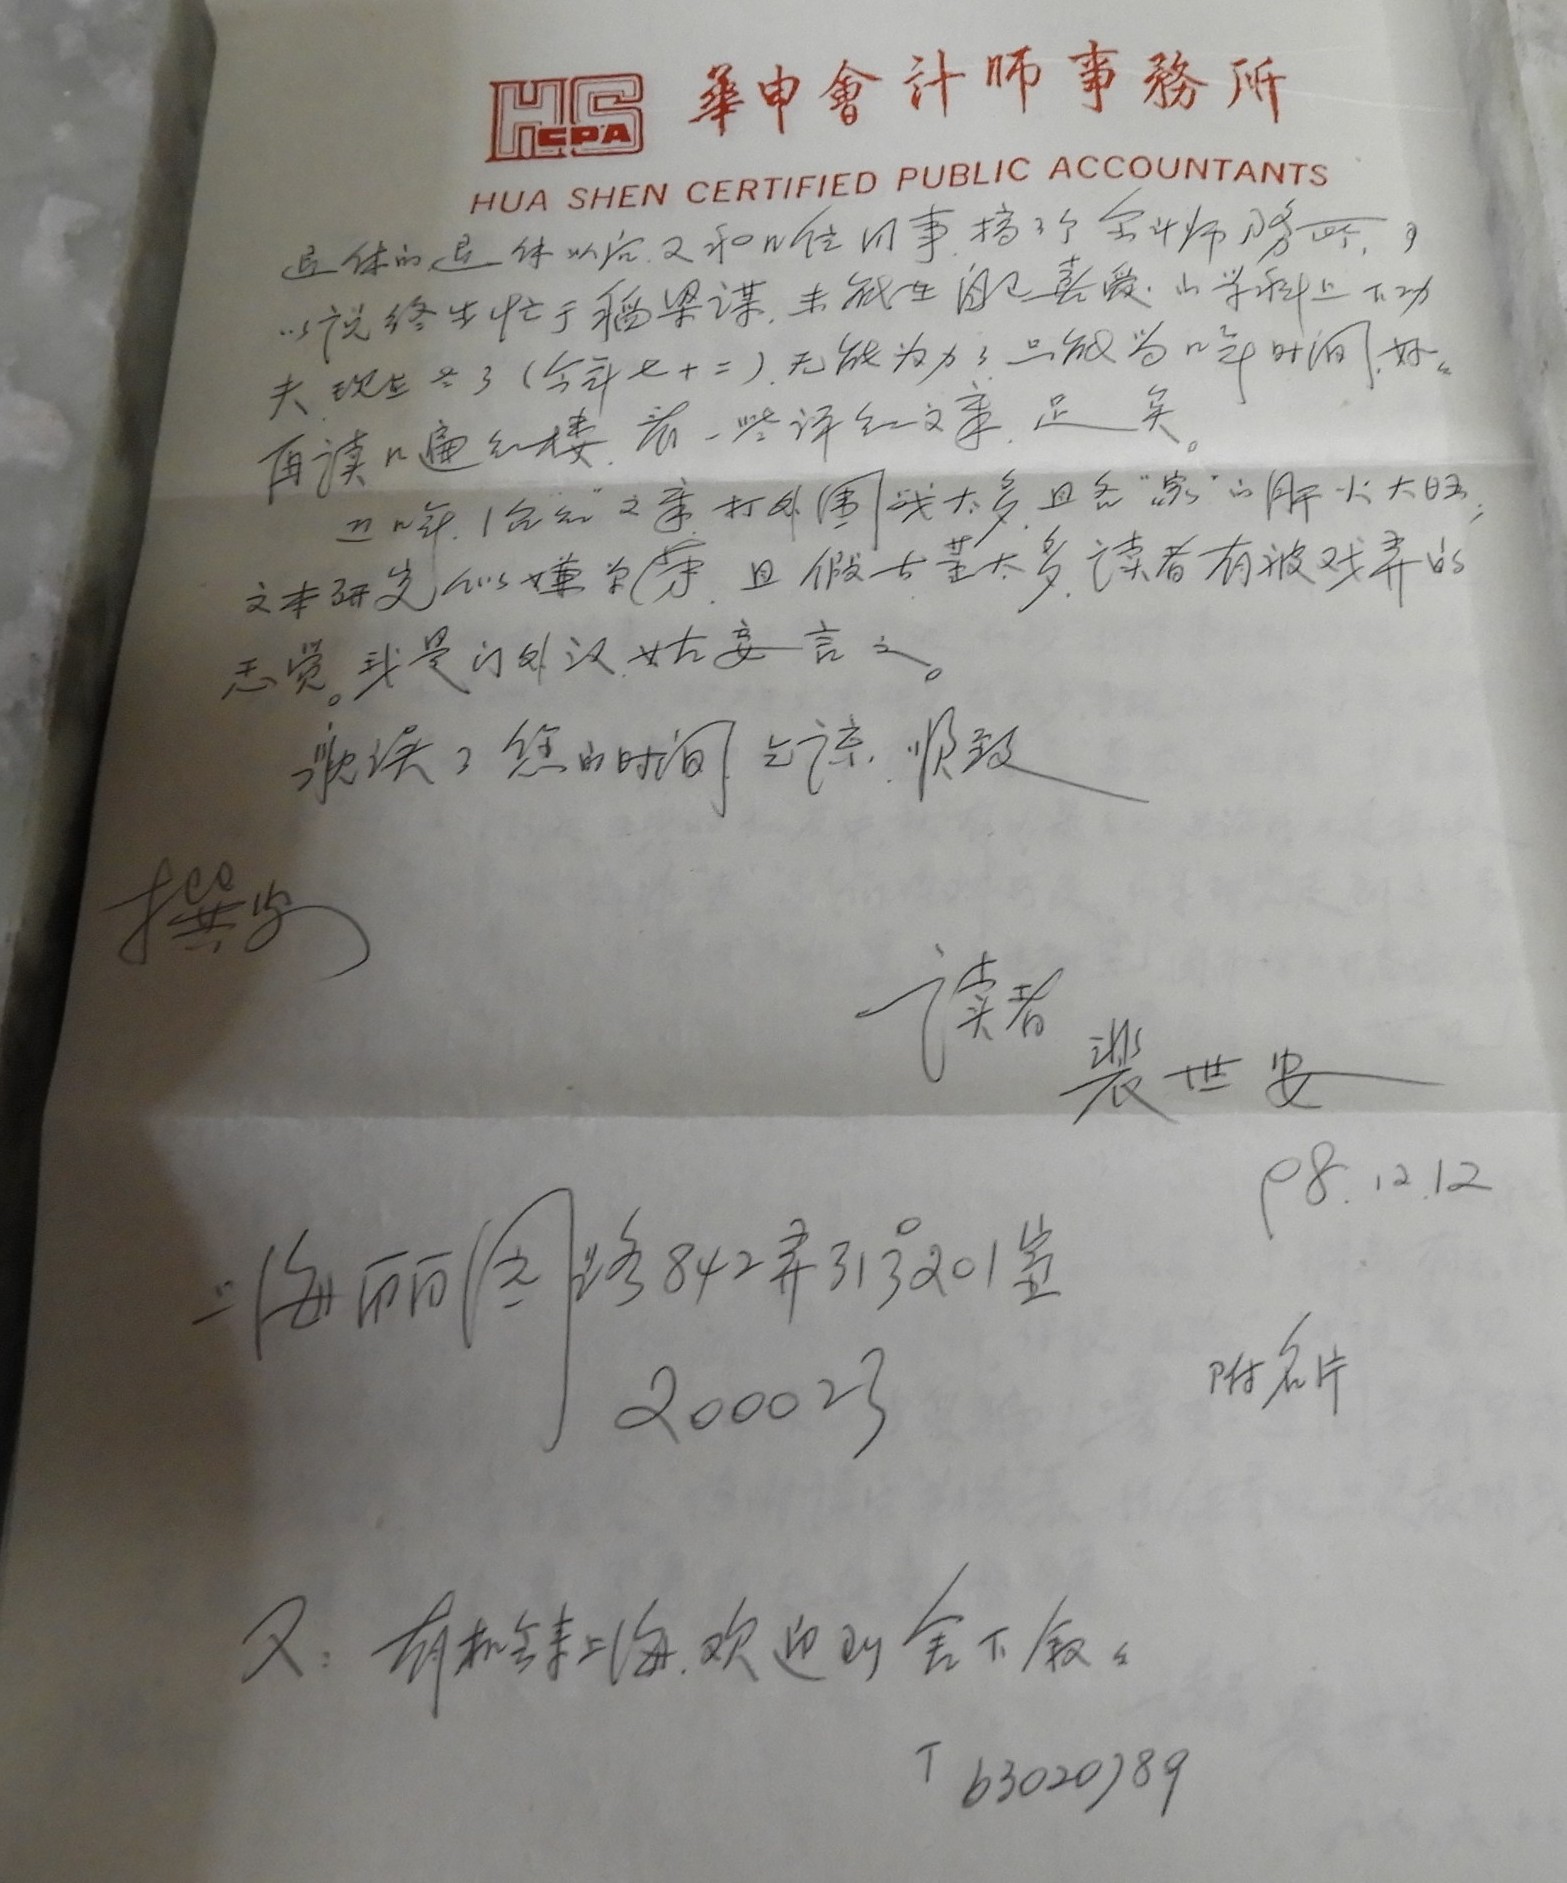 HS CPA 華申會計師事務所
HUA SHEN CERTIFIED PUBLIC ACCOUNTANTS
退休的.退休以后.又和几位同事.搞了个会计师事务所.可
以说终生忙于稻粱谋.未能在自己喜爱的学科上下功
夫.现在老了(今年七十二).无能为力了.只能当几年时间.好好
再读几遍红楼.看一些评红文章.足矣。
近几年.“红”文章.打外围战太多.且各“家”的肝火太旺;
文本研究似嫌单薄.且假古董太多.读者有被戏弄的
感觉。我是门外汉.姑妄言之。
耽误了您的时间.乞谅.顺致
撰安
读者
裴世安
98.12.12
上海丽园路842弄31号201室
200023
附名片
又:有机会来上海.欢迎到舍下叙叙
T 63020789